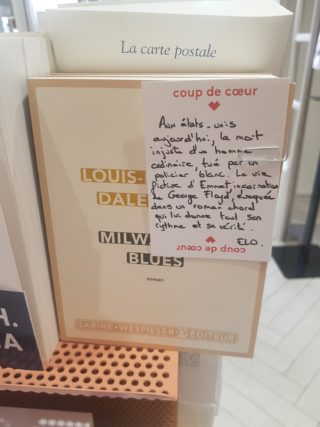 La carte postale
coup de cœur
Aux états-unis
aujourd'hui, la mort
injuste d'un homme
ordinaire, tué par un
policier blanc. La vie
fictive d'Emmet, incarnation
de George Floyd, évoquée
dans un roman choral
qui lui donne tout son
rythme et sa vérité.
ELO.
coup de cœur
LOUIS-
DALE
MILW
BLUES
roman
SABINE WESPIESER ÉDITEUR
H.
BA